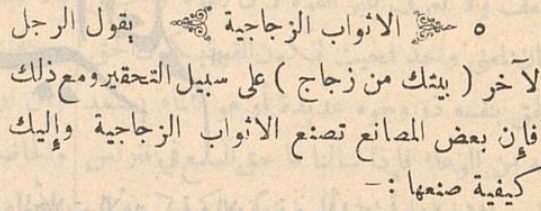 ٥ الاثواب الزجاجية يقول الرجل
لآخر ( بيتك من زجاج ) على سبيل التحقير ومع ذلك
فإن بعض المصانع تصنع الاثواب الزجاجية وإليك
كيفية صنعها : –